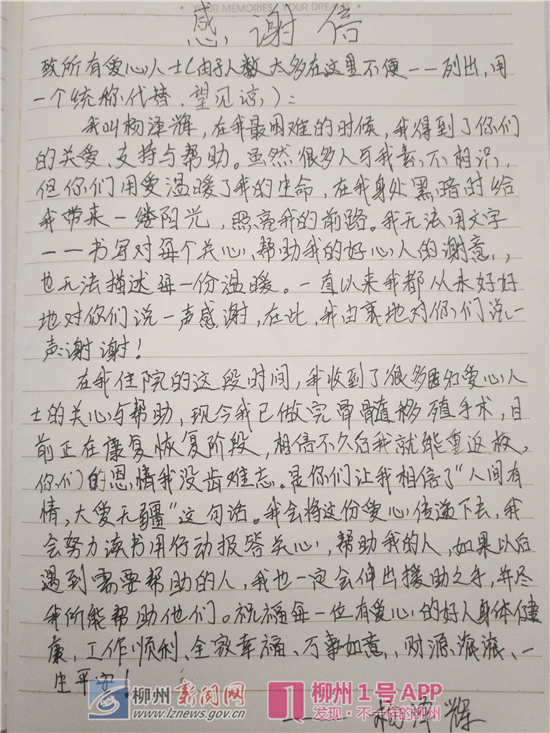 YOUR MEMORIES, YOUR DREAM
感谢信
致所有爱心人士(由于人数太多在这里不便一一列出,用
一个统称代替,望见谅):
我叫杨泽辉,在我最困难的时候,我得到了你们
的关爱、支持与帮助。虽然很多人与我素不相识,
但你们用爱温暖了我的生命,在我身处黑暗时给
我带来一缕阳光,照亮我的前路。我无法用文字
一一书写对每个关心,帮助我的好心人的谢意,
也无法描述每一份温暖。一直以来我都从未好好
地对你们说一声感谢,在此,我由衷地对你们说一
声谢谢!
在我住院的这段时间,我收到了很多爱心人
士的关心与帮助,现今我已做完骨髓移殖手术,目
前正在康复恢复阶段,相信不久后我就能重返校,
你们的恩情我没齿难忘。是你们让我相信了“人间有
情,大爱无疆”这句话。我会将这份爱心传递下去,我
会努力读书用行动报答关心,帮助我的人,如果以后
遇到需要帮助的人,我也一定会伸出援助之手,并尽
我所能帮助他们。祝福每一位有爱心的好人身体健
康,工作顺利、全家幸福、万事如意、财源滚滚、一
生平安!
杨泽辉
柳州新闻网
www.lznews.gov.cn
柳州1号APP
发现·不一样的柳州